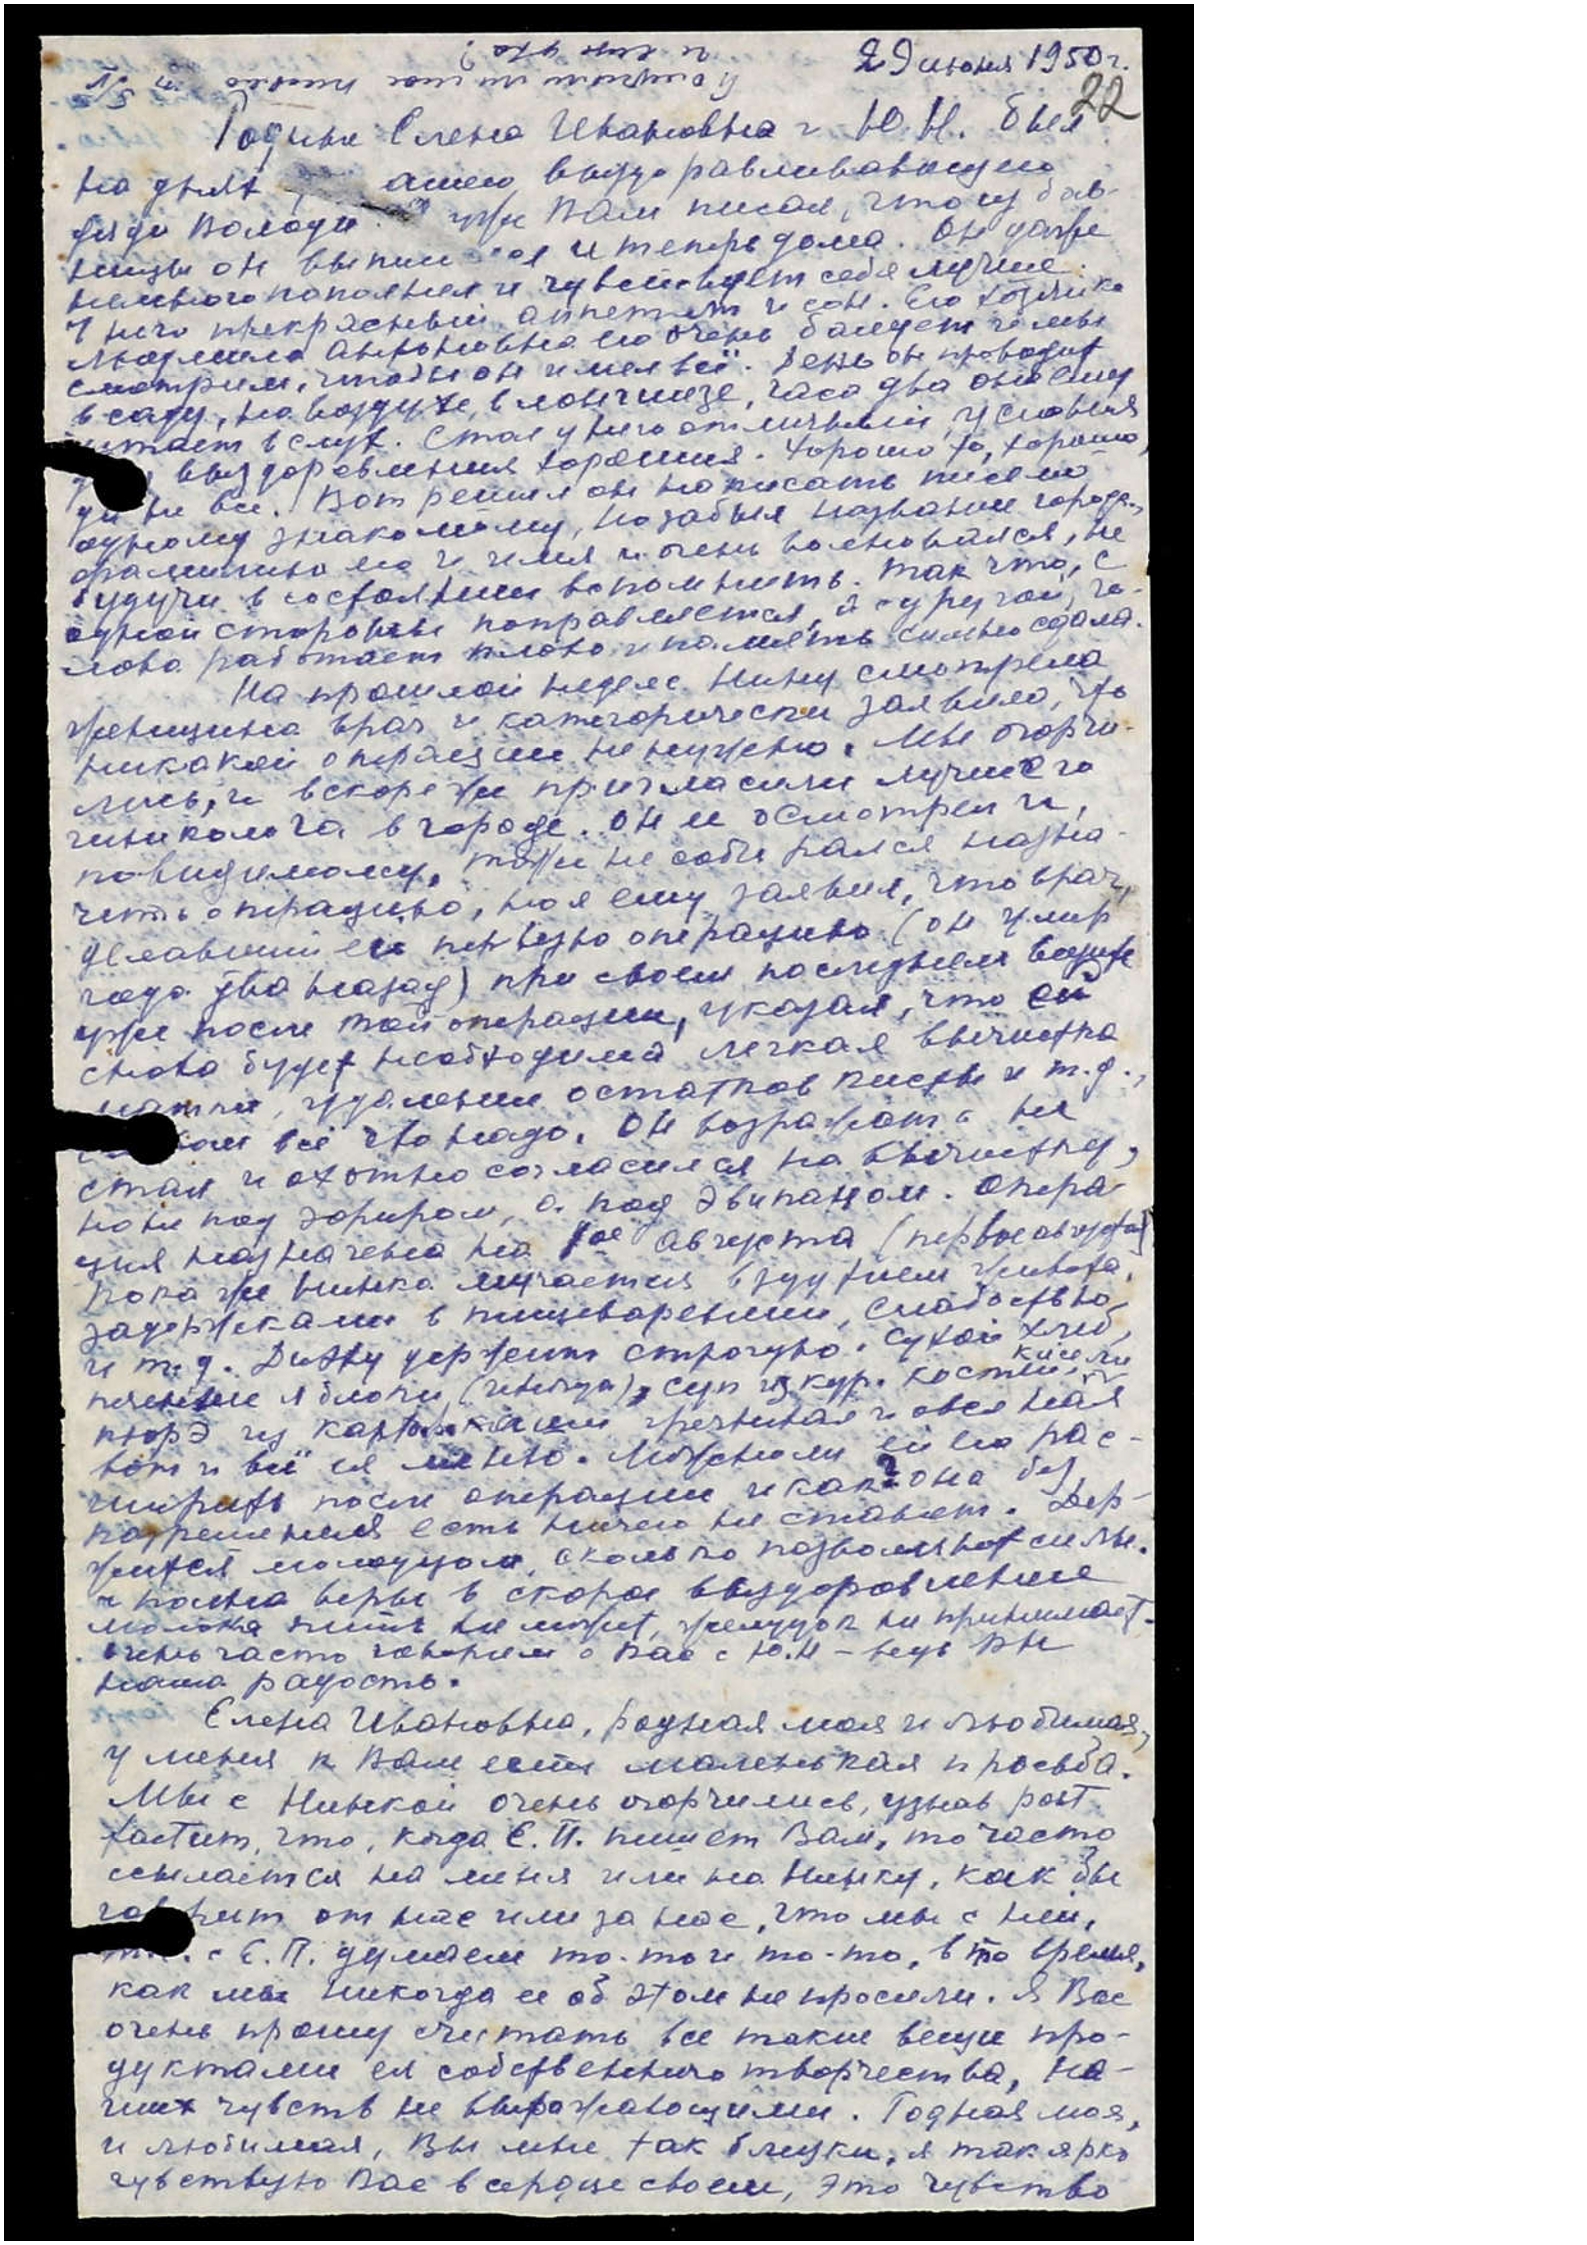 29 июня 1950 г.
22
и ещё уха?
Родные Елена Ивановна и Ю.Н. был
на днях выздоравливающего
дяди Володи. уже Вам писал, что из боль-
ницы он выписался и теперь дома. Он даже
немного пополнел и чувствует себя лучше.
У него прекрасный аппетит и сон. Его хозяйка
Людмила Антоновна его очень балует и мы
смотрим, чтобы он имел всё. День он проводит
в саду, на воздухе, в лонгшезе, часа два она ему
читает вслух. Стол у него отличный, условия
выздоровления хорошия. Хорошо то, хорошо,
да не все. Вот решил он написать письмо
одному знакомому, позабыл название города,
фамилию его и имя и очень волновался, не
будучи в состоянии вспомнить. Так что, с
одной стороны поправляется, а с другой, го-
лова работает плохо и память сильно сдала.
На прошлой неделе Нину смотрела
женщина врач и категорически заявила, что
никакой операции не нужно. Мы огорчи-
лись, и вскоре же пригласили лучшего
гиниколога в городе. Он ее осмотрел и,
повидимому, тоже не собирался назна-
чить операцию, но я ему заявил, что врач,
делавший ей первую операцию (он умер
года два назад) при своем последнем визите
уже после той операции, указал, что ей
снова будет необходима легкая вычистка
матки, удаление остатков кисты и т.д.,
всё что надо. Он возражать не
стал и охотно согласился на вычистку,
но не под эфиром, а под Эвипаном. Опера-
ция назначена на 1ое Августа (первое августа)
Пока же Нинка мучается вздутием живота,
задержками в пищеварении, слабостью,
и т.д. Диэту держит строгую. Сухой хлеб,
печеные яблоки (иногда), суп из кур. костей, кисели
пюрэ из картофеля каши гречневая и овсяная
вот и всё ея меню. Можно ли ей его рас-
ширить после операции и как? Она без
разрешения есть ничего не станет. Дер-
жится молодцом, сколько позволяют силы.
и полна веры в скорое выздоровление
молока пить не может, желудок не принимает.
Очень часто говорим о Вас с Ю.Н – ведь Вы
наша радость.
Елена Ивановна, родная моя и любимая,
у меня к Вам есть маленькая просьба.
Мы с Нинкой очень огорчились, узнав post
factum, что, когда Е.П. пишет Вам, то часто
ссылается на меня или на Нинку, как бы
говорит от нас или за нас, что мы с ней,
т.е. с Е.П. думаем то-то и то-то, в то время,
как мы никогда ее об этом не просили. Я Вас
очень прошу считать все такие вещи про-
дуктами ея собственного творчества, на-
ших чувств не выражающими. Родная моя,
и любимая, Вы мне так близки, я так ярко
чувствую Вас в сердце своем, это чувство